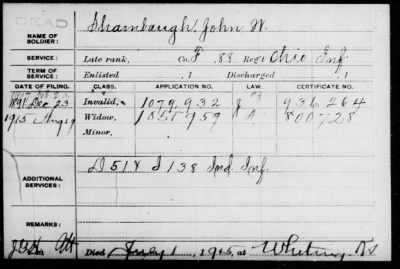 DEAD
NAME OF SOLDIER: Shambaugh, John W.
SERVICE: Late rank, Co. F. 88 Reg't Ohio Inf
TERM OF SERVICE: Enlisted , 1 Discharged , 1
DATE OF FILING. CLASS. APPLICATION NO. LAW. CERTIFICATE NO.
1891 Dec 23 Invalid, 1079,932 936264
1915 Aug 9 Widow, 1051959 800728
Minor,
ADDITIONAL SERVICES: D 51 & I 138 Ind Inf.
REMARKS:
Died July 1, 1915, at Whiting Ks